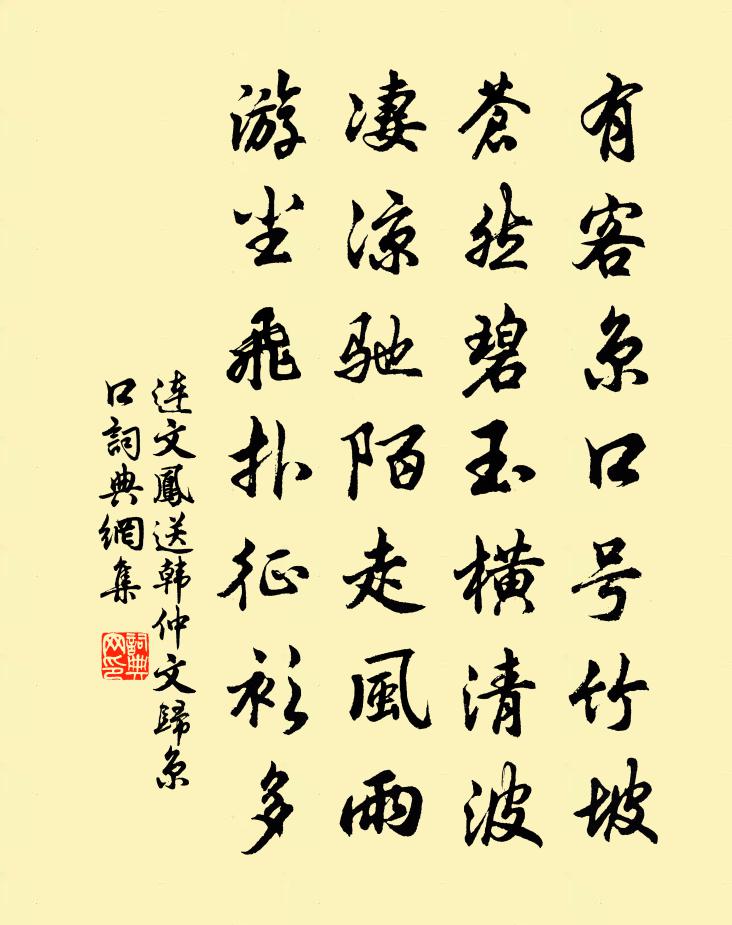 有客京口号竹坡
蒼然碧玉橫清波
凄凉馳陌走風雨
游尘飛扑征衫多
連文鳳送韩仲文歸京
口詞典網集
詞典
网印